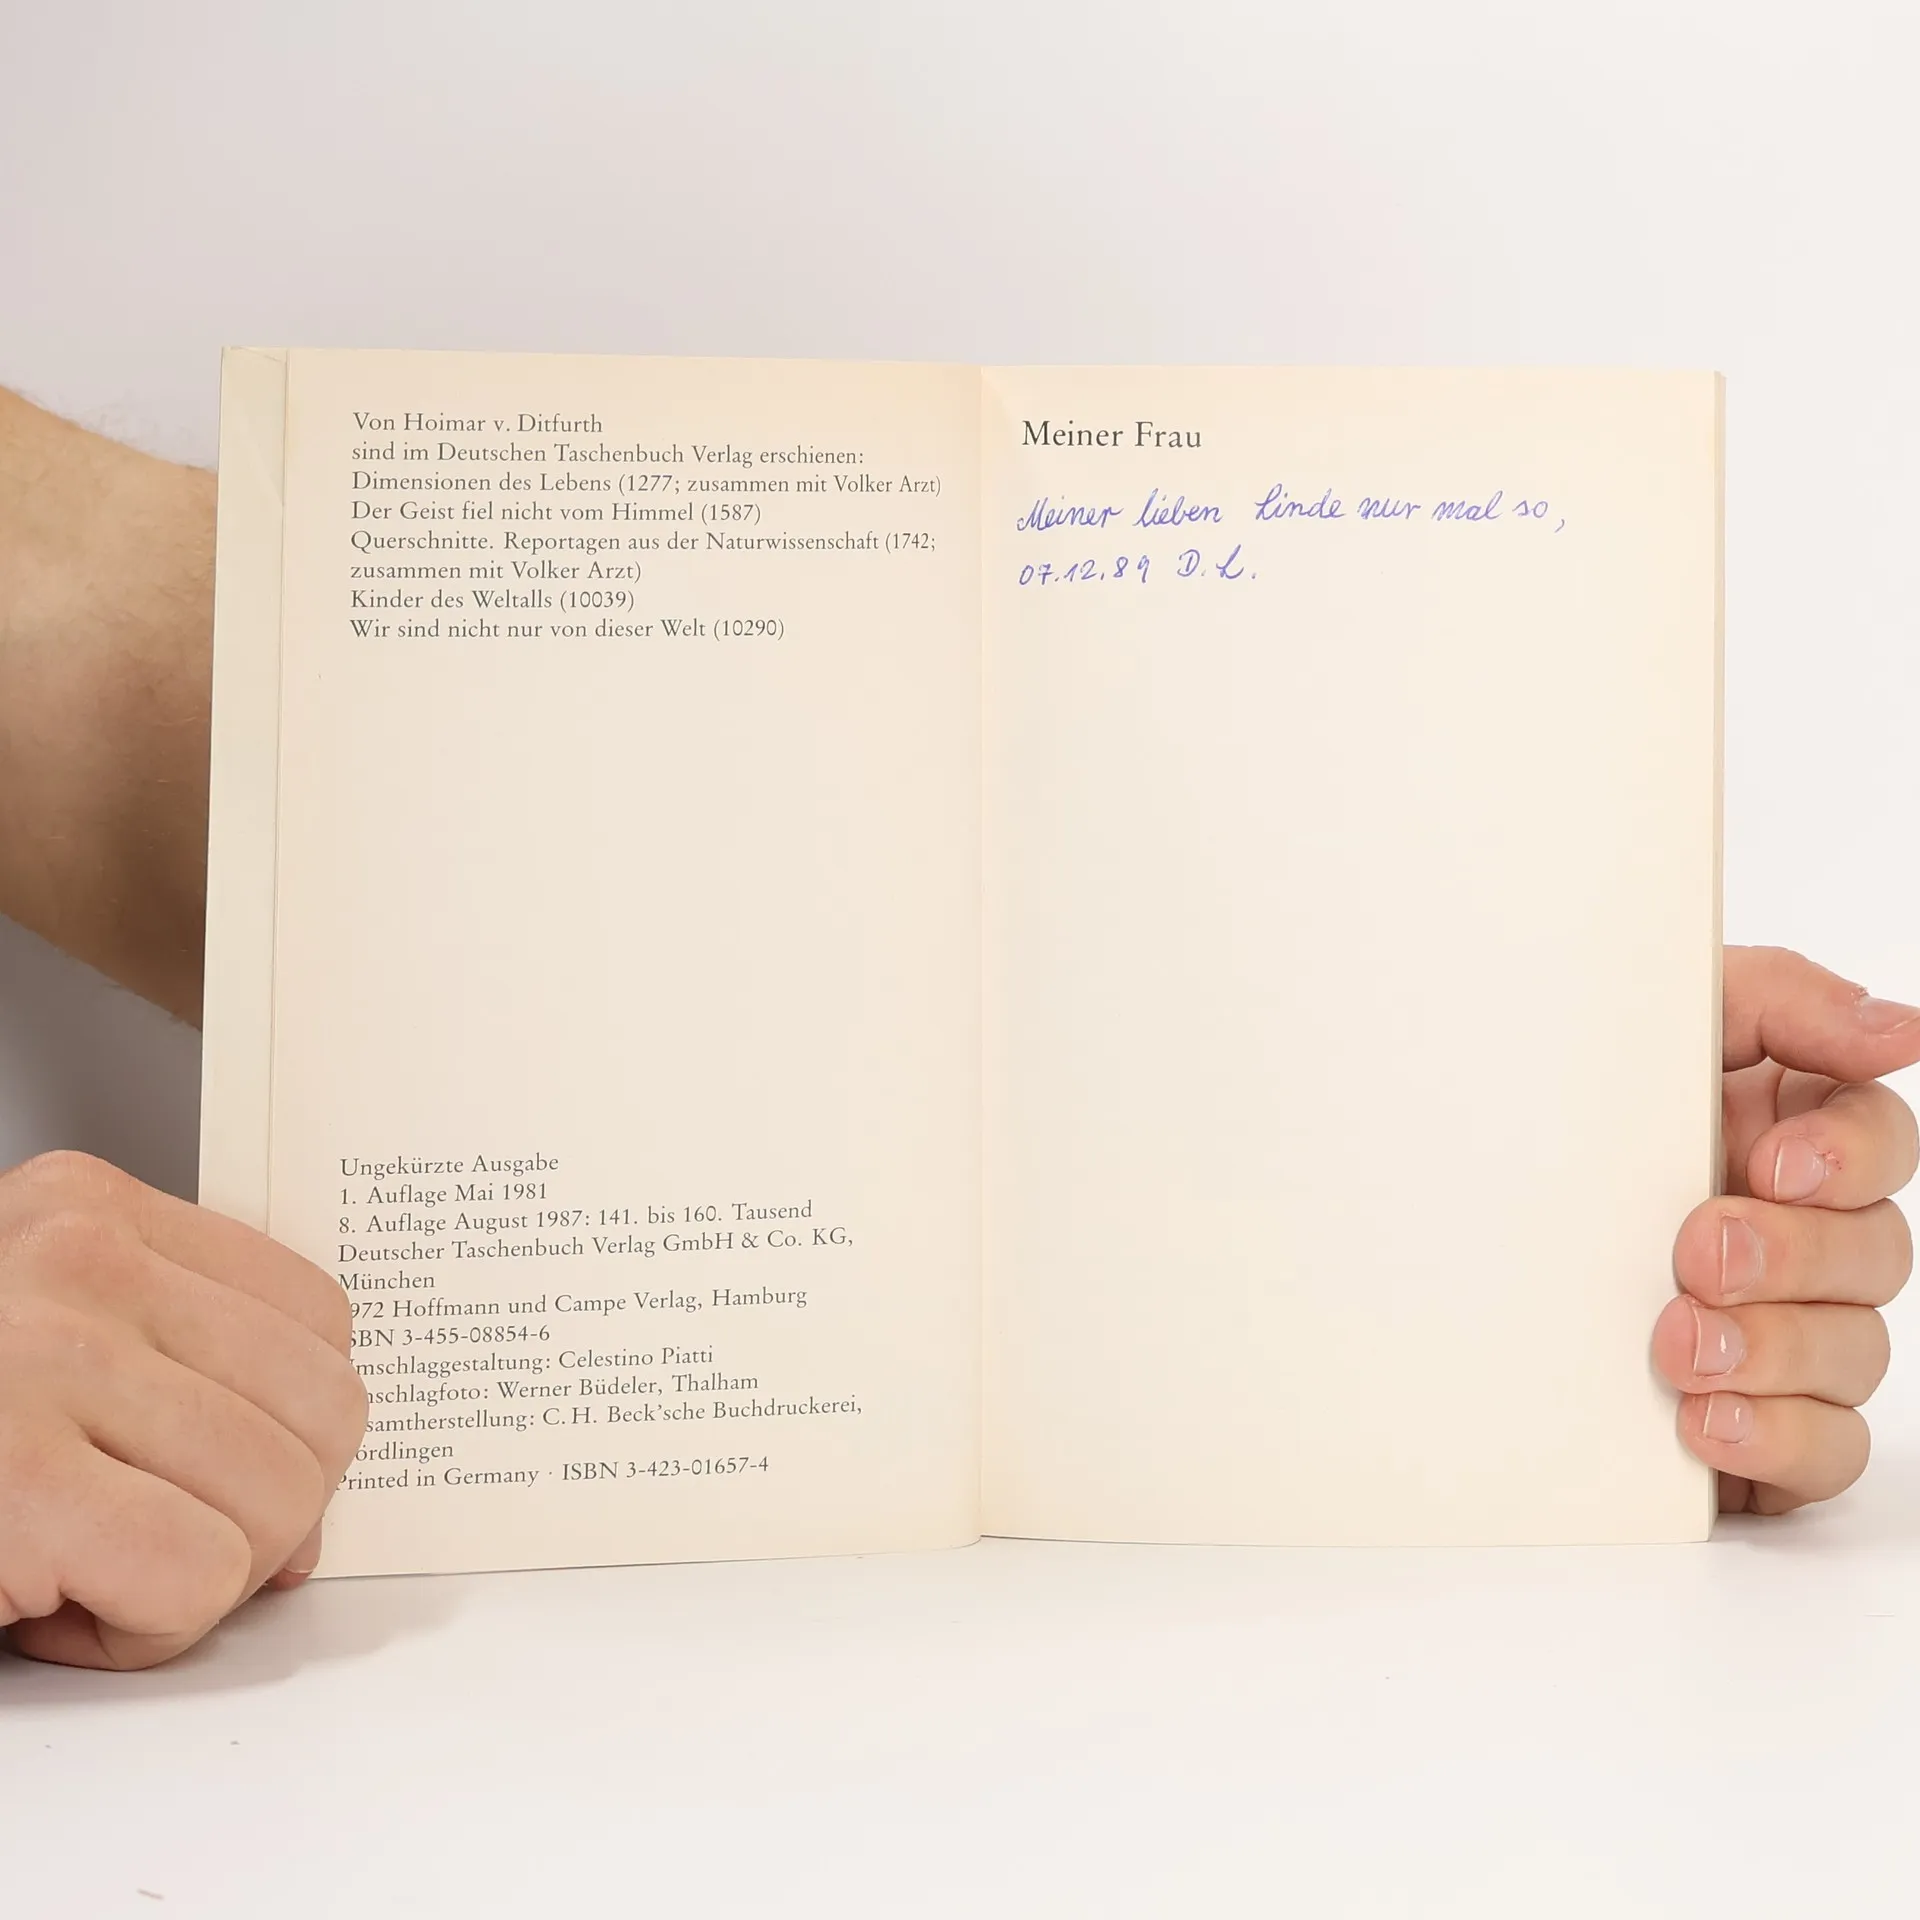 Von Hoimar v. Ditfurth
sind im Deutschen Taschenbuch Verlag erschienen:
Dimensionen des Lebens (1277; zusammen mit Volker Arzt)
Der Geist fiel nicht vom Himmel (1587)
Querschnitte. Reportagen aus der Naturwissenschaft (1742;
zusammen mit Volker Arzt)
Kinder des Weltalls (10039)
Wir sind nicht nur von dieser Welt (10290)
Ungekürzte Ausgabe
1. Auflage Mai 1981
8. Auflage August 1987: 141. bis 160. Tausend
Deutscher Taschenbuch Verlag GmbH & Co. KG,
München
972 Hoffmann und Campe Verlag, Hamburg
SBN 3-455-08854-6
mschlaggestaltung: Celestino Piatti
nschlagfoto: Werner Büdeler, Thalham
samtherstellung: C. H. Beck'sche Buchdruckerei,
ördlingen
Printed in Germany · ISBN 3-423-01657-4
Meiner Frau
Meiner lieben Linde nur mal so,
07.12.89 D. L.